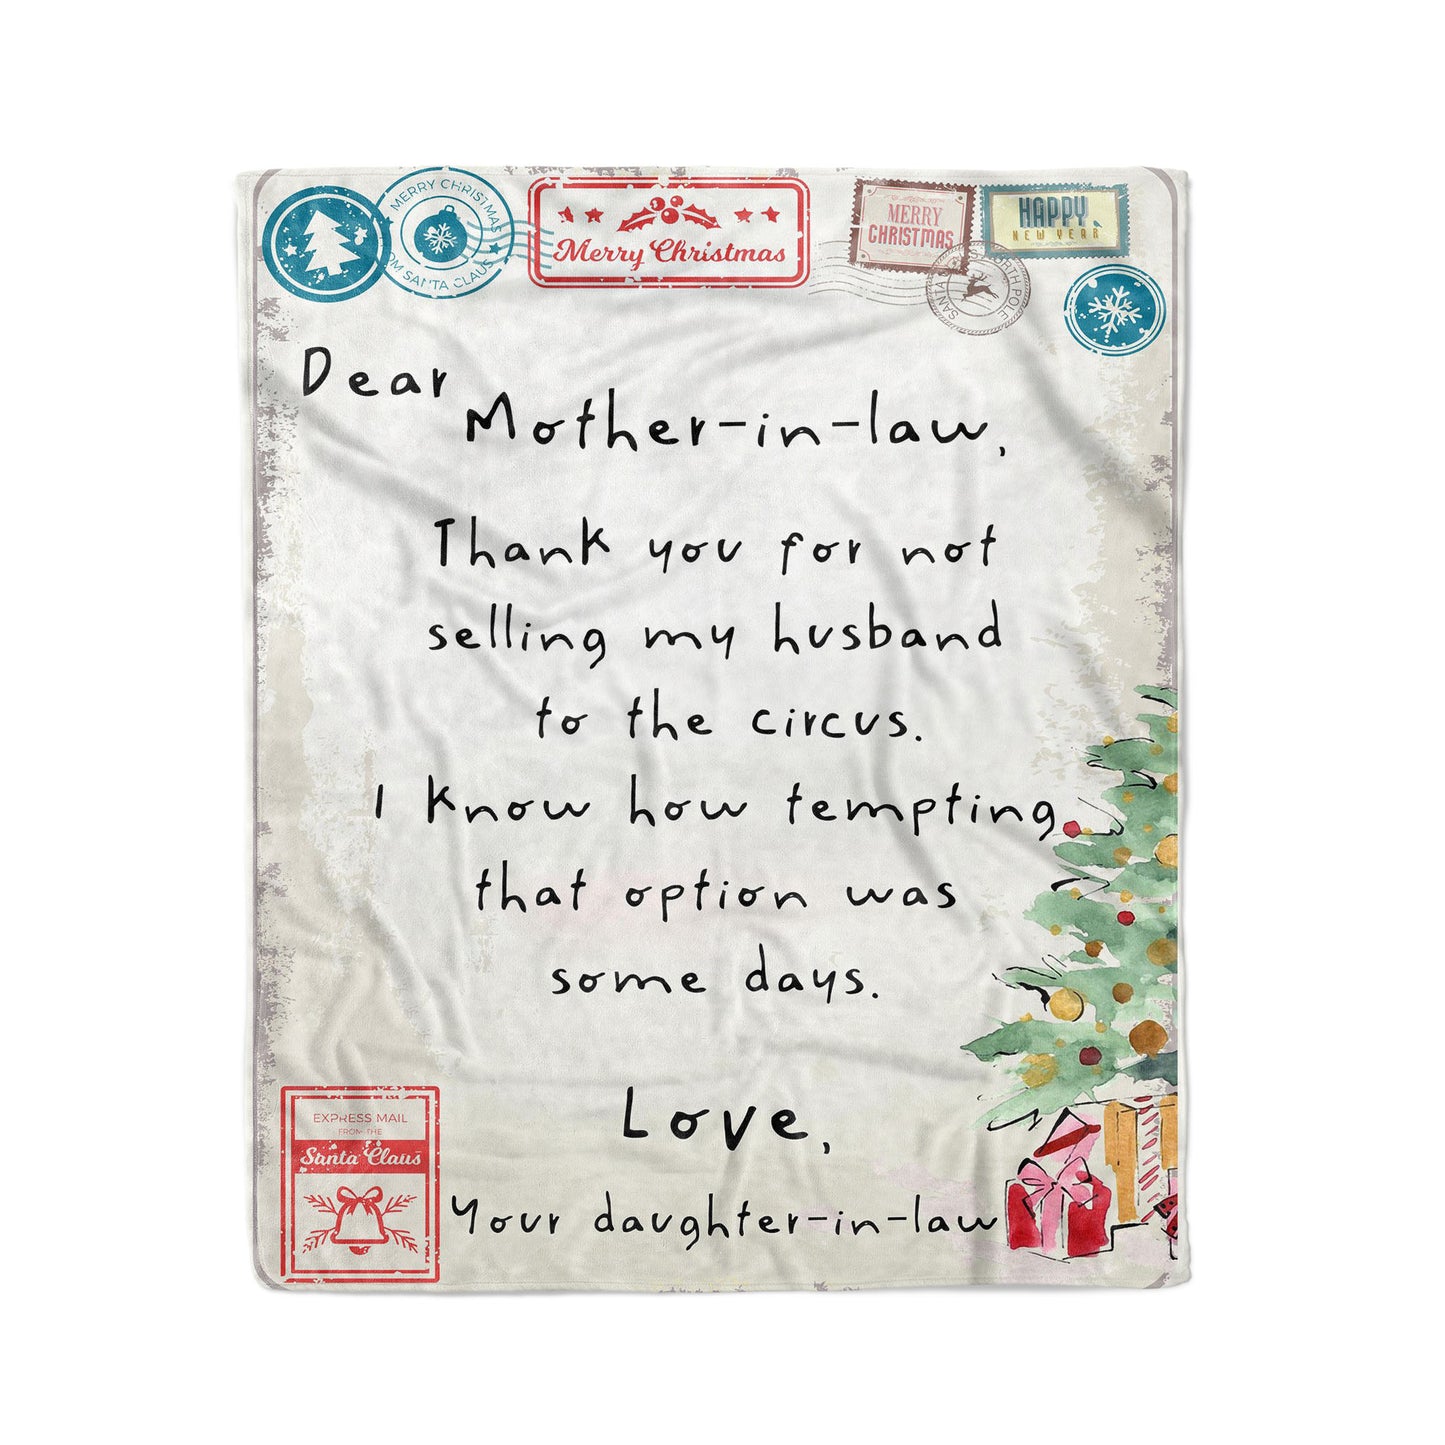 MERRY CHRISTMAS
OM SANTA CLAUS
Merry Christmas
MERRY
CHRISTMAS
HAPPY
NEW YEAR
SANTA
NORTH POLE
Dear
Mother-in-law,
Thank you for not
selling my husband
to the circus.
I know how tempting
that option was
some days.
Love,
Your daughter-in-law
EXPRESS MAIL
FROM THE
Santa Claus